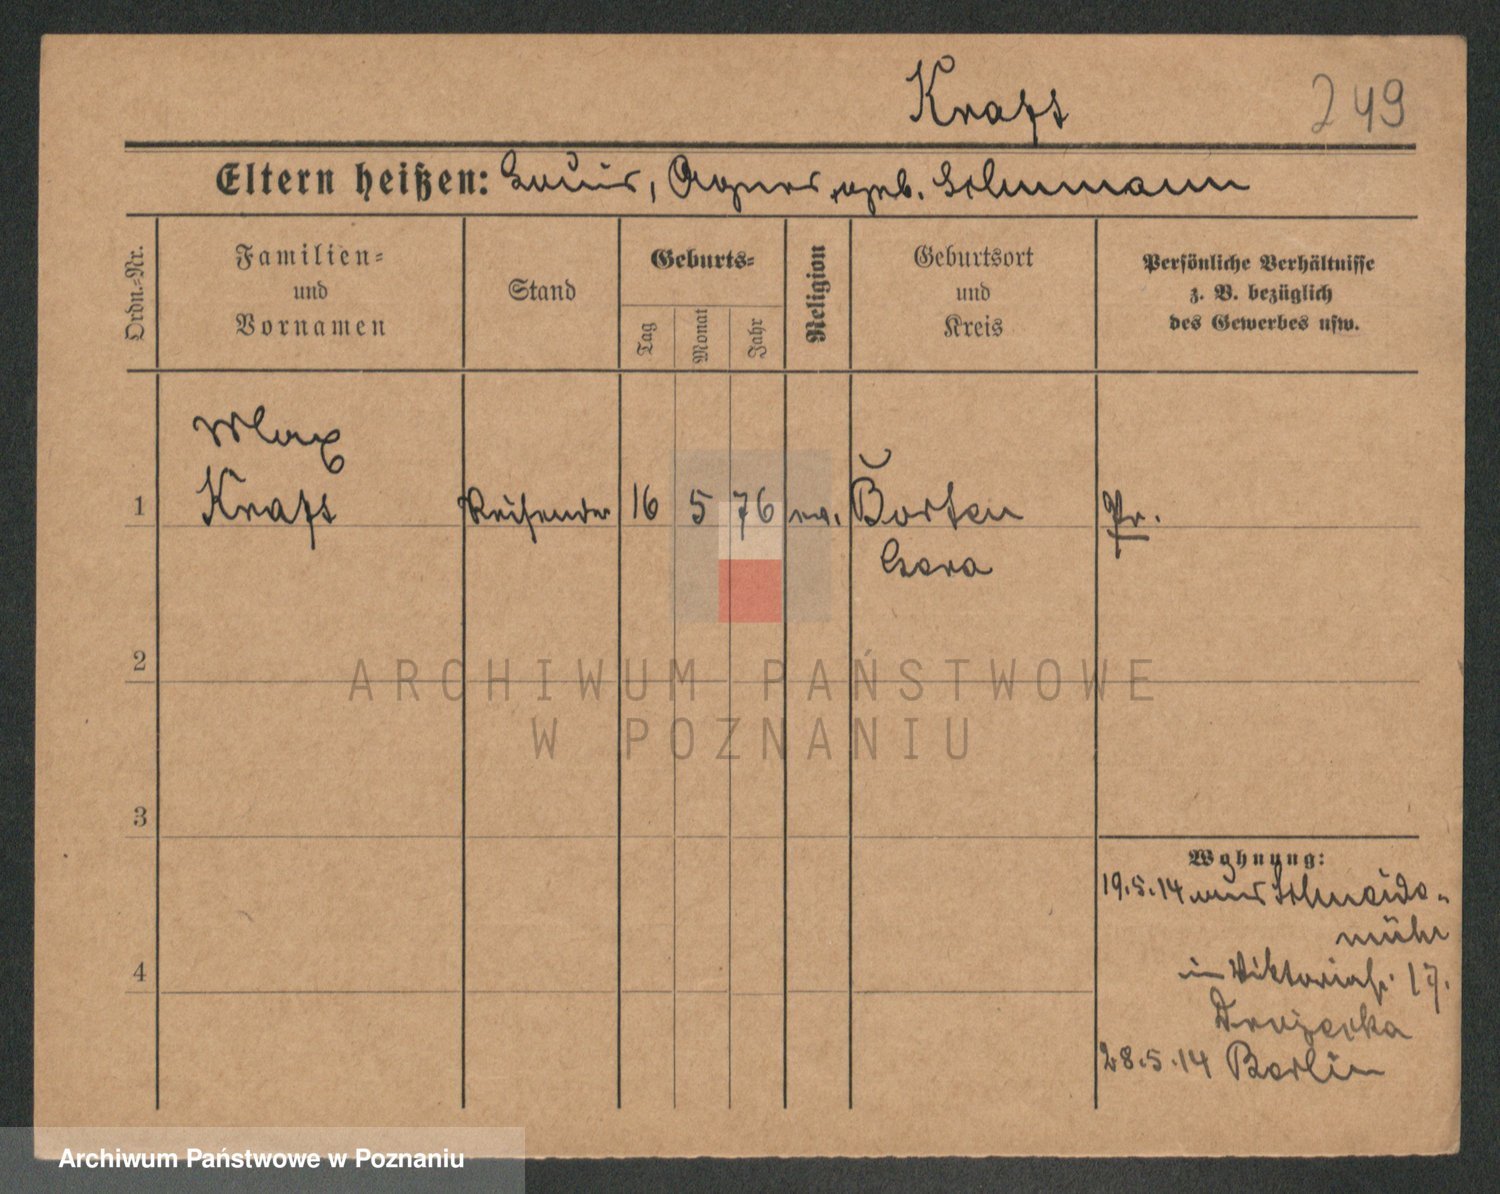 Kraft 249
Eltern heißen: Louis, Agnes, geb. Schumann
Ordn.-Nr.
Familien- und Vornamen
Stand
Geburts-
Tag
Monat
Jahr
Religion
Geburtsort und Kreis
Persönliche Verhältnisse
z. B. bezüglich
des Gewerbes usw.
Max
1 Kraft Reisender 16 5 76 ev. Pr.
2
3
4
Wohnung:
19.5.14 aus Schneide-
mühl
in Viktoriastr. 17.
28.5.14 Berlin
ARCHIWUM PAŃSTWOWE
W POZNANIU
Archiwum Państwowe w Poznaniu